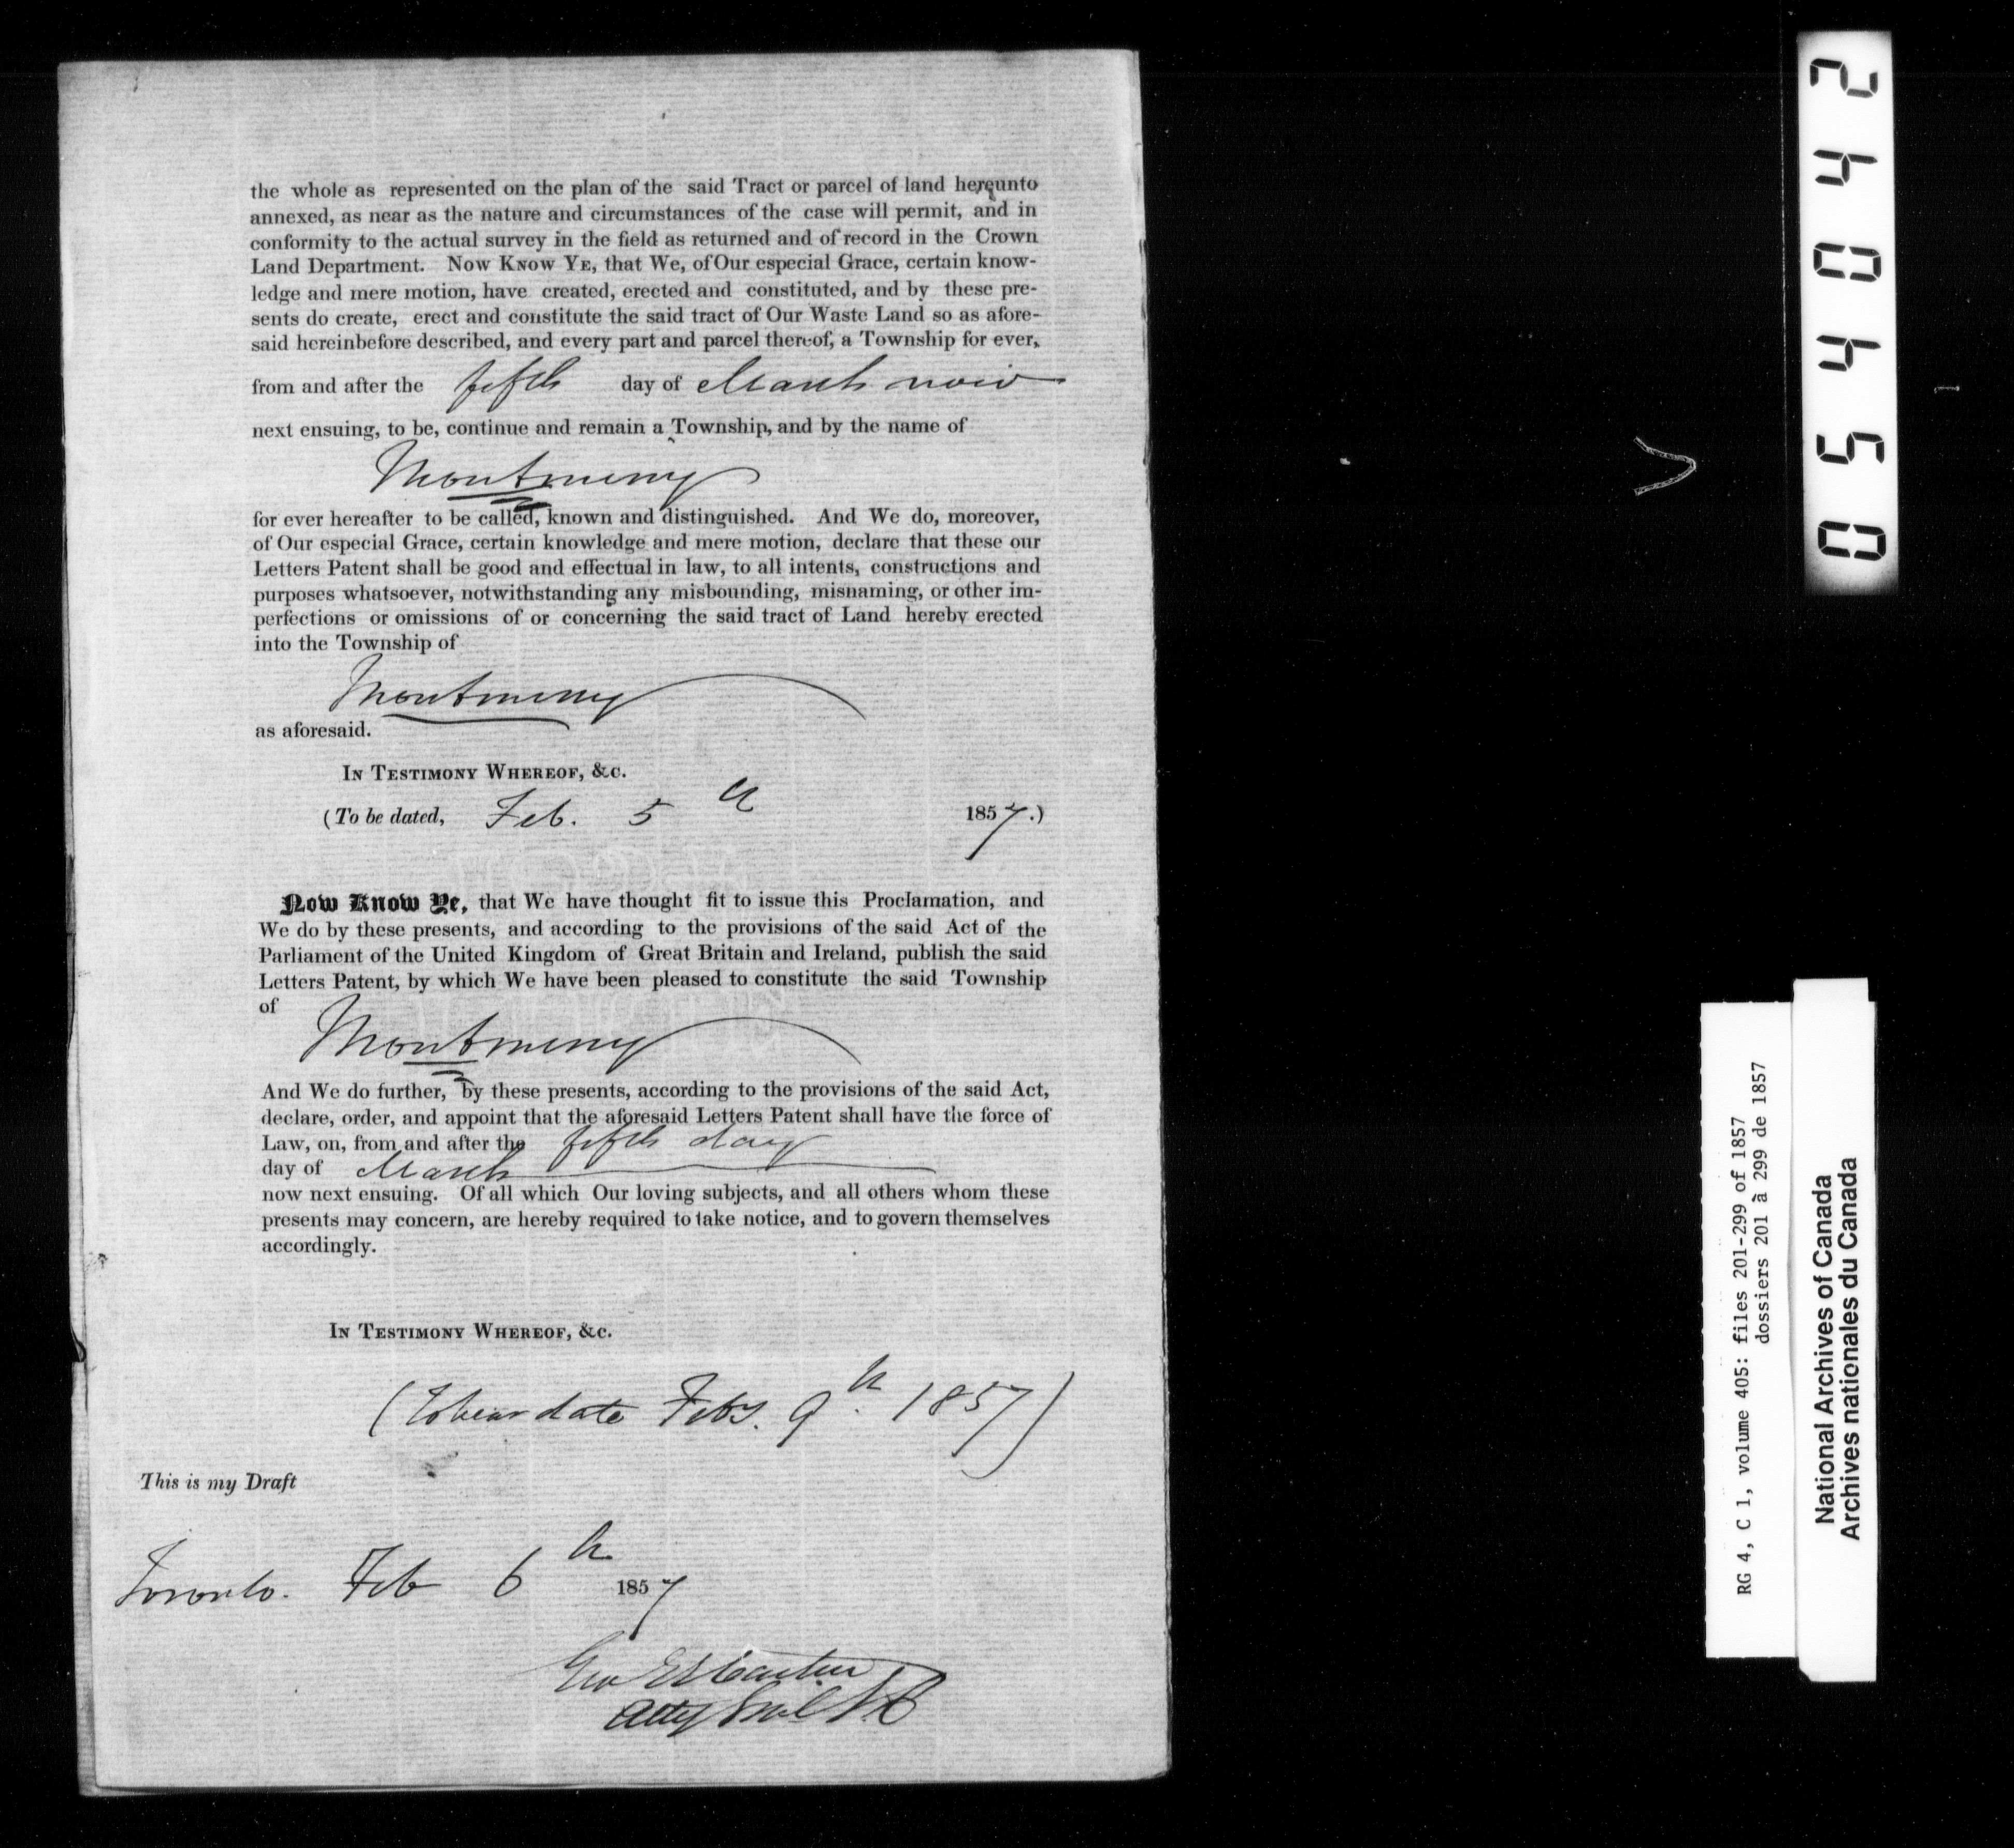 the whole as represented on the plan of the said Tract or parcel of land hereunto
annexed, as near as the nature and circumstances of the case will permit, and in
conformity to the actual survey in the field as returned and of record in the Crown
Land Department. Now Know Ye, that We, of Our especial Grace, certain know-
ledge and mere motion, have created, erected and constituted, and by these pre-
sents do create, erect and constitute the said tract of Our Waste Land so as afore-
said hereinbefore described, and every part and parcel thereof, a Township for ever,
from and after the fifth day of March now
next ensuing, to be, continue and remain a Township, and by the name of
Montminy
for ever hereafter to be called, known and distinguished. And We do, moreover,
of Our especial Grace, certain knowledge and mere motion, declare that these our
Letters Patent shall be good and effectual in law, to all intents, constructions and
purposes whatsoever, notwithstanding any misbounding, misnaming, or other im-
perfections or omissions of or concerning the said tract of Land hereby erected
into the Township of
Montminy
as aforesaid.
In Testimony Whereof, &c.
(To be dated, Feb. 5th 1857.)
Now Know Ye, that We have thought fit to issue this Proclamation, and
We do by these presents, and according to the provisions of the said Act of the
Parliament of the United Kingdom of Great Britain and Ireland, publish the said
Letters Patent, by which We have been pleased to constitute the said Township
of
Montminy
And We do further, by these presents, according to the provisions of the said Act,
declare, order, and appoint that the aforesaid Letters Patent shall have the force of
Law, on, from and after the fifth day
day of March
now next ensuing. Of all which Our loving subjects, and all others whom these
presents may concern, are hereby required to take notice, and to govern themselves
accordingly.
In Testimony Whereof, &c.
(To bear date Feby. 9th. 1857)
This is my Draft
Toronto. Feb 6th 1857
Geo E Cartier
Atty Genl LC
240450
RG 4, C 1, volume 405: files 201-299 of 1857
dossiers 201 à 299 de 1857
National Archives of Canada
Archives nationales du Canada